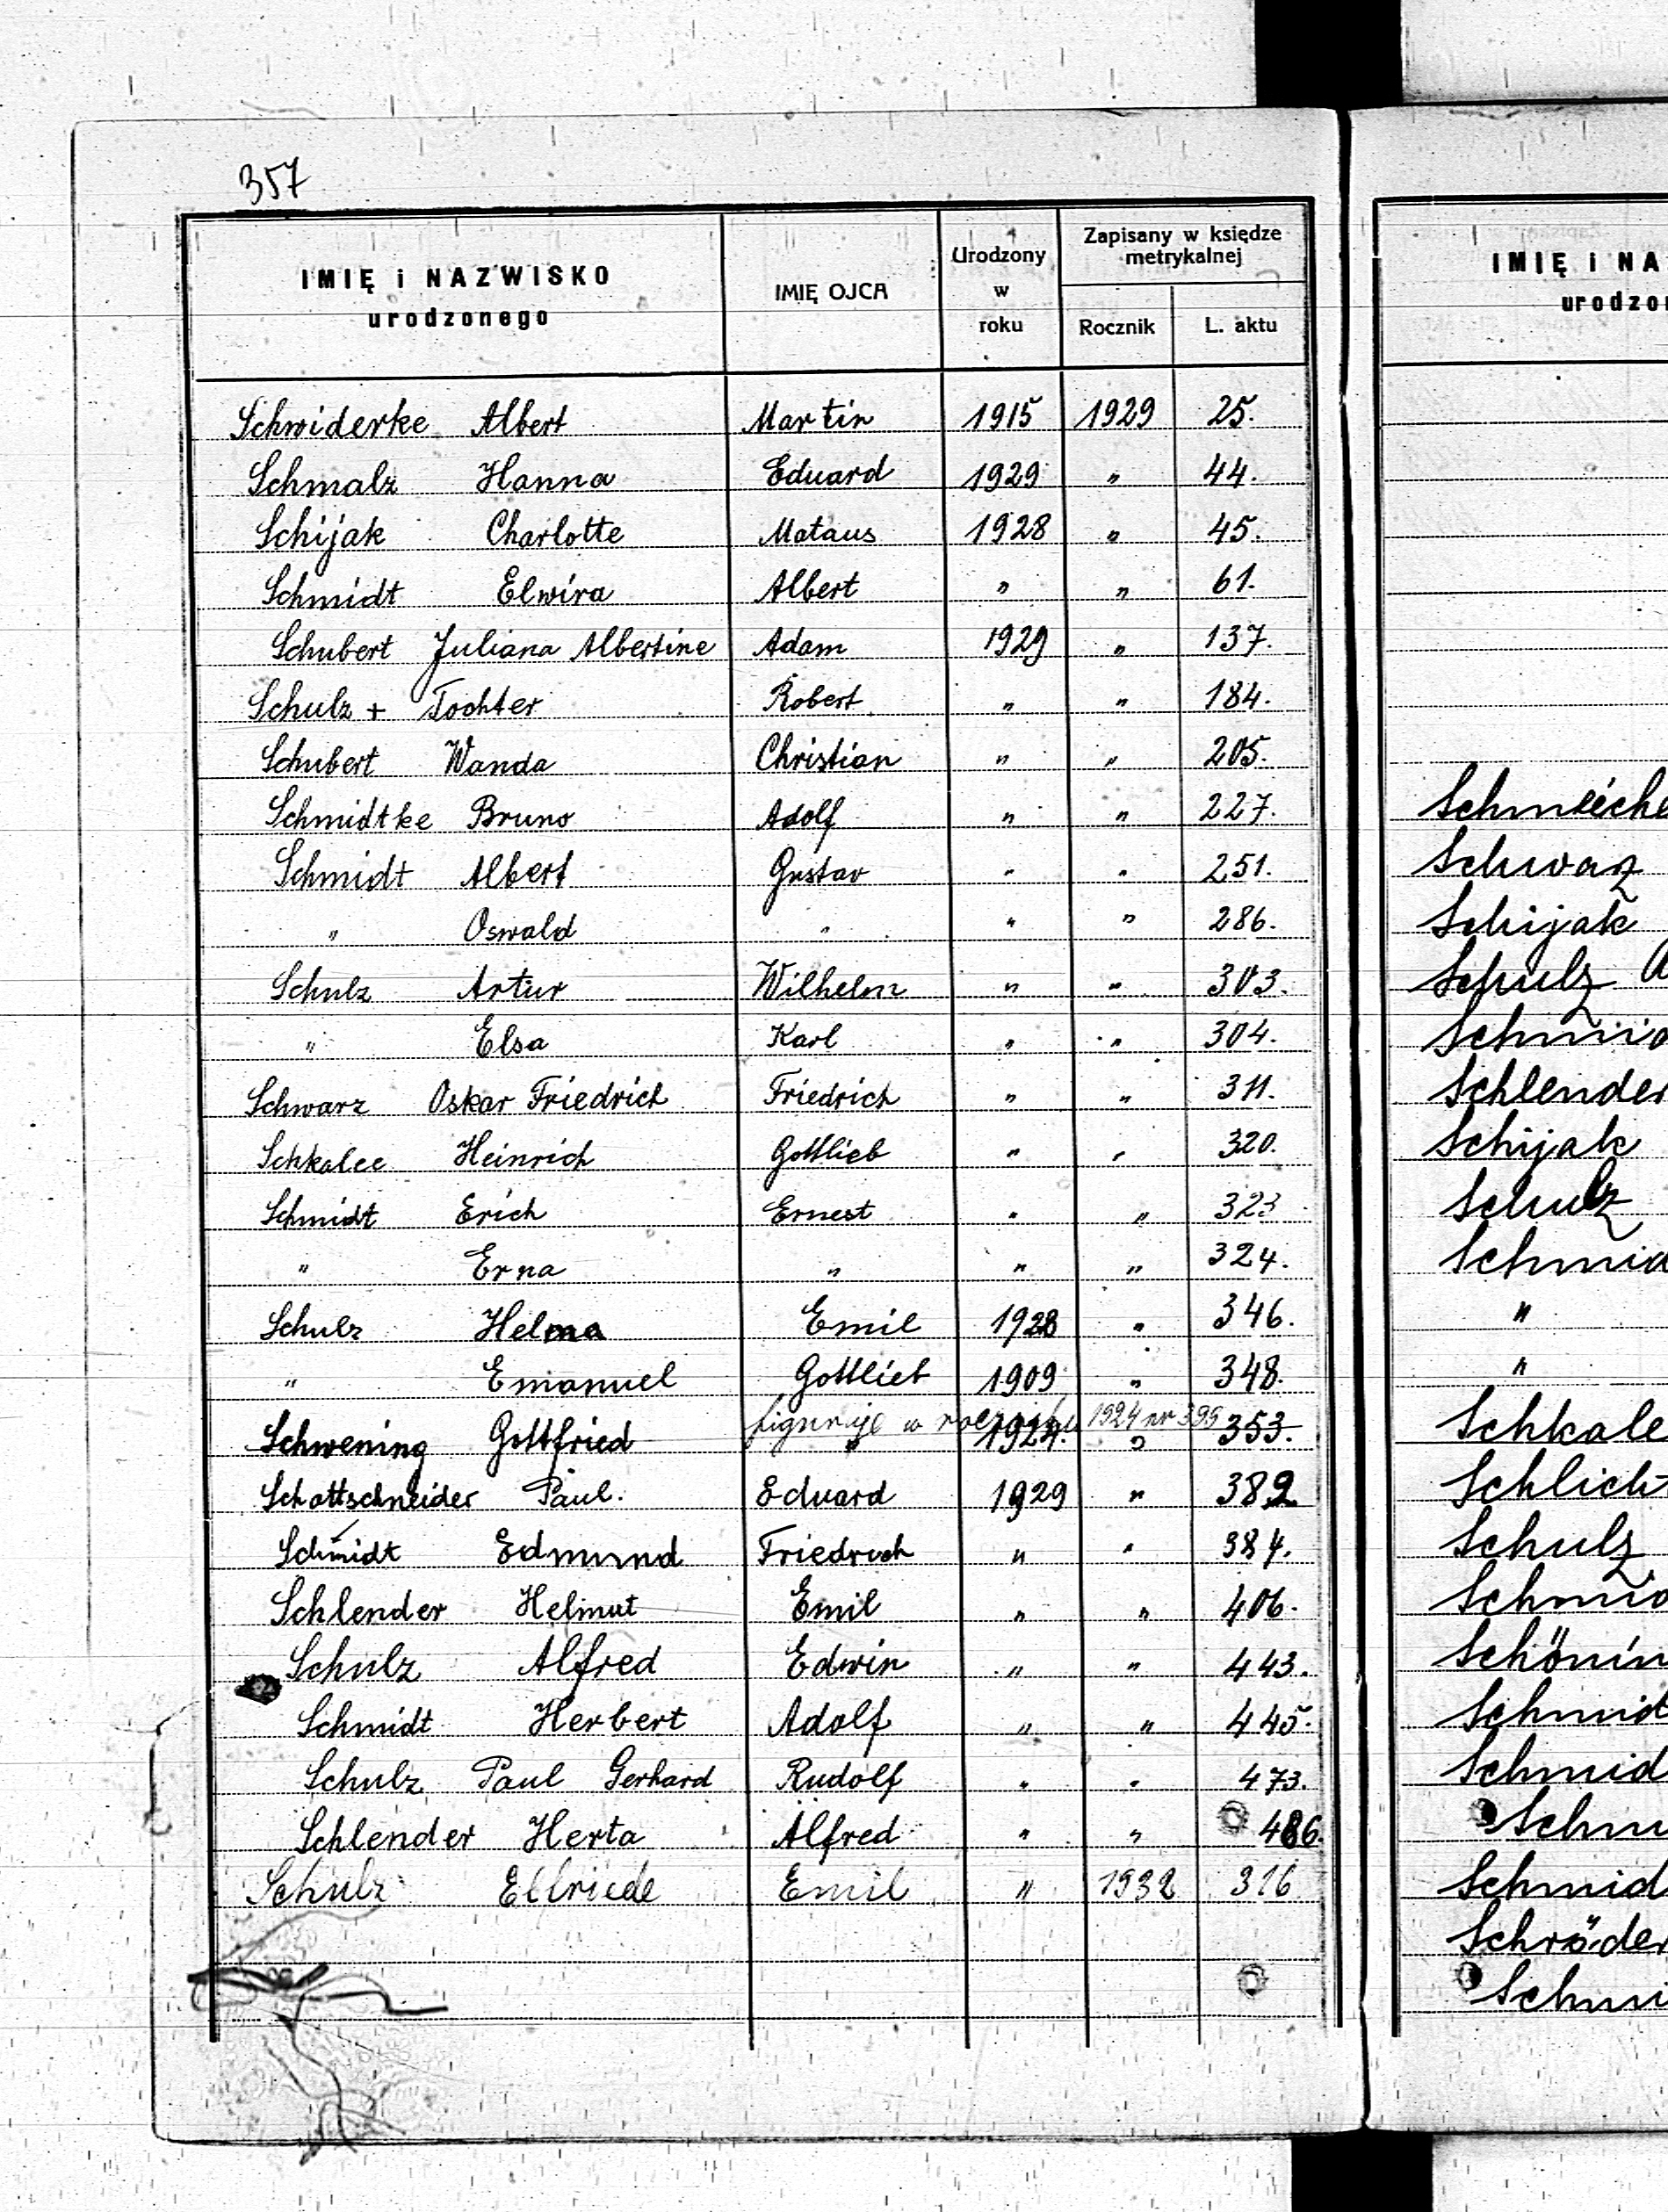 357
IMIĘ i NAZWISKO urodzonego IMIĘ OJCA Urodzony w roku Zapisany w księdze metrykalnej Rocznik L. aktu
Schwiderke Albert Martin 1915 1929 25.
Schmalz Hanna Eduard 1929 " 44.
Schijak Charlotte Mataus 1928 " 45.
Schmidt Elwira Albert " " 61.
Schubert Juliana Albertine Adam 1929 " 137.
Schulz + Tochter Robert " " 184.
Schubert Wanda Christian " " 205.
Schmidtke Bruno Adolf " " 227.
Schmidt Albert Gustav " " 251.
" Oswald " " " 286.
Schulz Artur Wilhelm " " 303.
" Elsa Karl " " 304.
Schwarz Oskar Friedrich Friedrich " " 311.
Schkalee Heinrich Gottlieb " " 320.
Schmidt Erich Ernest " " 323
" Erna " " " 324.
Schulz Helma Emil 1928 " 346.
" Emanuel Gottlieb 1909 " 348.
figuruje w roczniku 1924 nr 399
Schwening Gottfried " 1924. " 353.
Schattschneider Paul. Eduard 1929 " 382
Schmidt Edmund Friedrich " " 384.
Schlender Helmut Emil " " 406.
Schulz Alfred Edwin " " 443.
Schmidt Herbert Adolf " " 445.
Schulz Paul Gerhard Rudolf " " 473.
Schlender Herta Alfred " " 486.
Schulz Elfriede Emil " 1932 316
IMIĘ i NA
urodzo
Schmeiche
Schwarz
Schijak
Schulz A
Schmid
Schlender
Schijak
Schulz
Schmid
"
"
Schkale
Schlicht
Schulz
Schmid
Schönin
Schmidt
Schmid
Schm
Schmid
Schröder
Schmi